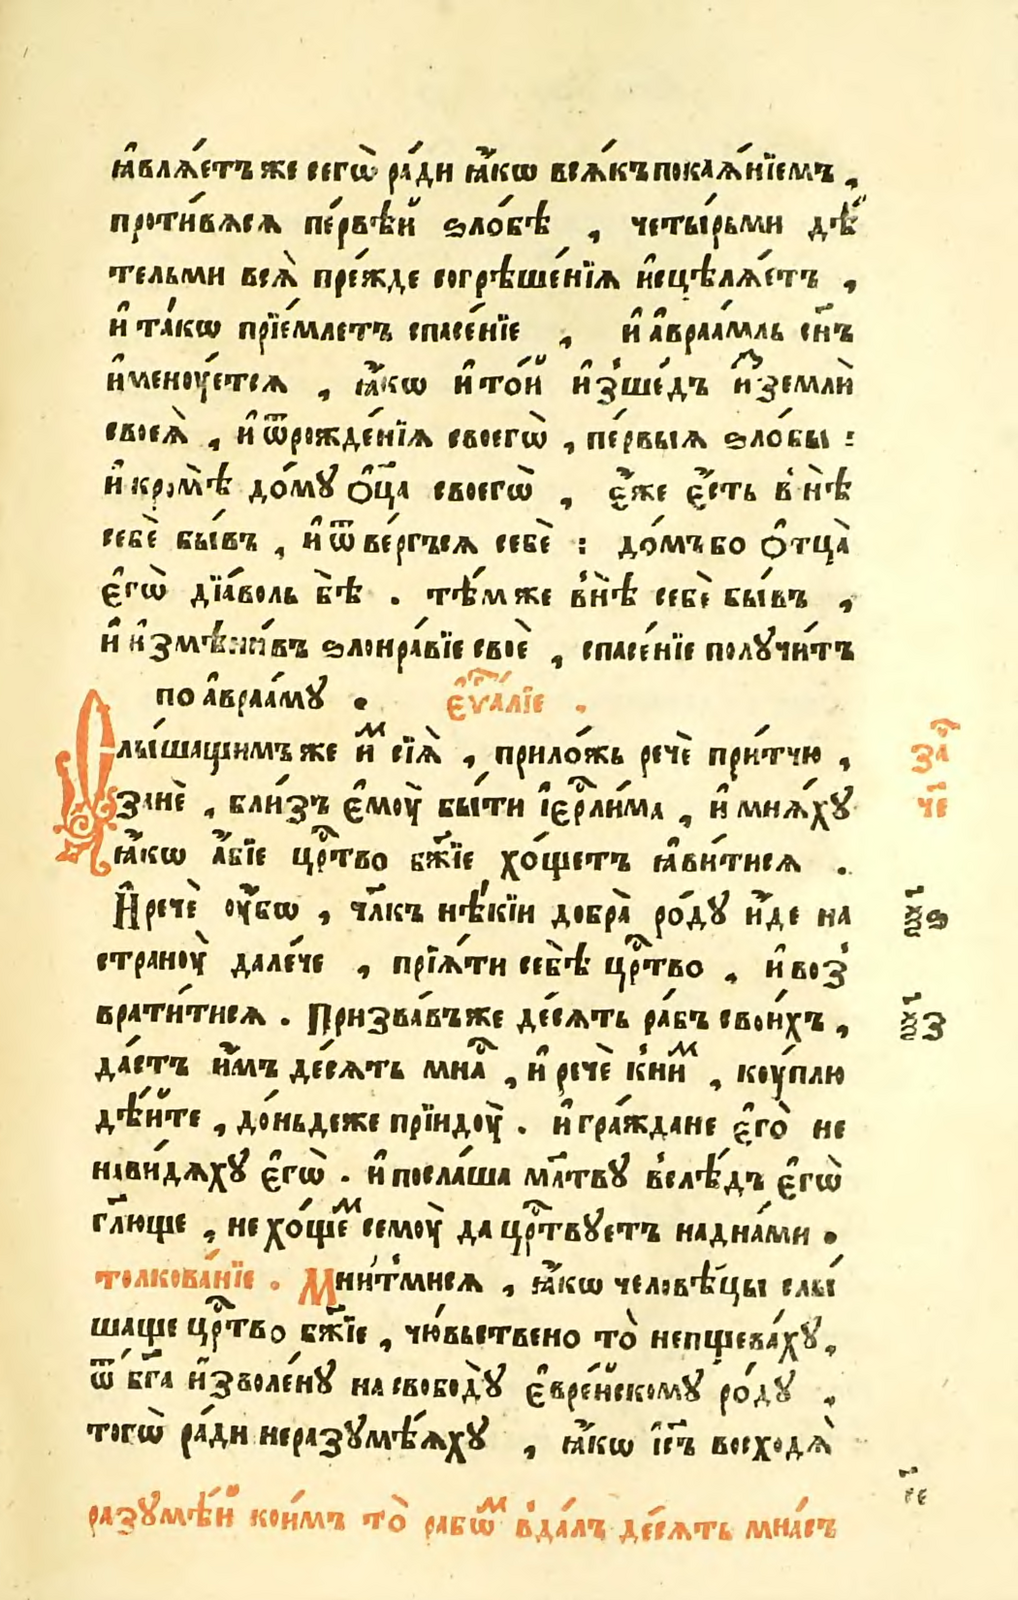 ꙗ҆влѧ́етъ же сегѡ̀ ра́ди ꙗ҆́кѡ всѧ́къ покаѧ́нїемъ ,
проти́вѧсѧ пе́рвѣй ѕло́бѣ , четы́рьми дѣ́
тельми всѧ̀ пре́жде согрѣше́нїѧ и҆сцѣлѧ́етъ ,
и҆ та́кѡ прїе́млетъ спасе́нїе , и҆ а҆враа́мль сн҃ъ
и҆менꙋ́етсѧ , ꙗ҆́кѡ и҆ то́й и҆зше́дъ и҆ землѝ
своеѧ̀ , и҆ ѿ рожде́нїѧ своегѡ̀ , пе́рвыѧ ѕло́бы :
и҆ кромѣ̀ до́мꙋ о҆ц҃а своегѡ̀ , є҆́же є҆́сть внѣ̀
себѐ бы́въ , и҆ ѿве́ргъсѧ себѐ : до́мъ бо о҆тца̀
є҆гѡ̀ дїа́волъ бѣ̀ . тѣ́мже внѣ̀ себѐ бы́въ ,
и҆ и҆змѣни́въ ѕлонра́вїе своѐ , спасе́нїе полꙋчи́тъ
по а҆враа́мꙋ . є҆ѵа́лїе .
Слы́шащимъ же и҆м сїѧ̀ , прило́жь речѐ при́тчю ,
занѐ , бли́зъ є҆мꙋ̀ бы́ти і҆ерⷭ҇ли́ма , и҆ мнѧ́хꙋ
ꙗ҆́кѡ а҆́бїе црⷭ҇тво бж҃їе хо́щетъ ꙗ҆ви́тисѧ .
И҆ речѐ ᲂу҆̀бѡ , чл҃къ нѣ́кїи добра̀ ро́дꙋ и҆́де на
странꙋ̀ дале́че , прїѧ́ти себѣ̀ црⷭ҇тво , и҆ воз
врати́тисѧ . Призва́въ же де́сѧть ра́бъ свои́хъ ,
да́стъ и҆̀мъ де́сѧть мнаⷭ҇ , и҆ речѐ к ни́м , кꙋ́плю
дѣ́йте , до́ньдеже прїидꙋ̀ . и҆ гра́ждане є҆го̀ не
нави́дѧхꙋ є҆гѡ̀ . и҆ посла́ша мл҃твꙋ вслѣ́дъ є҆гѡ̀
гл҃юще , не хо́щем семꙋ̀ да црⷭ҇твꙋетъ над на́ми .
толкова́нїе . Мни́тмисѧ , ꙗ҆́кѡ человѣ́цы слы́
шаще црⷭ҇тво бж҃їе , чю́вьствено то̀ непщева́хꙋ ,
ѿ бг҃а и҆зволе́нꙋ на свобо́дꙋ є҆вре́йскомꙋ ро́дꙋ ,
тогѡ̀ ра́ди не разꙋмѣ́ѧхꙋ , ꙗ҆́кѡ і҆с҃ъ восходѧ̀
за
че
ѕ
з
разꙋмѣ́й кои́мъ то̀ рабѡ́м вда́лъ де́сѧть мна́съ